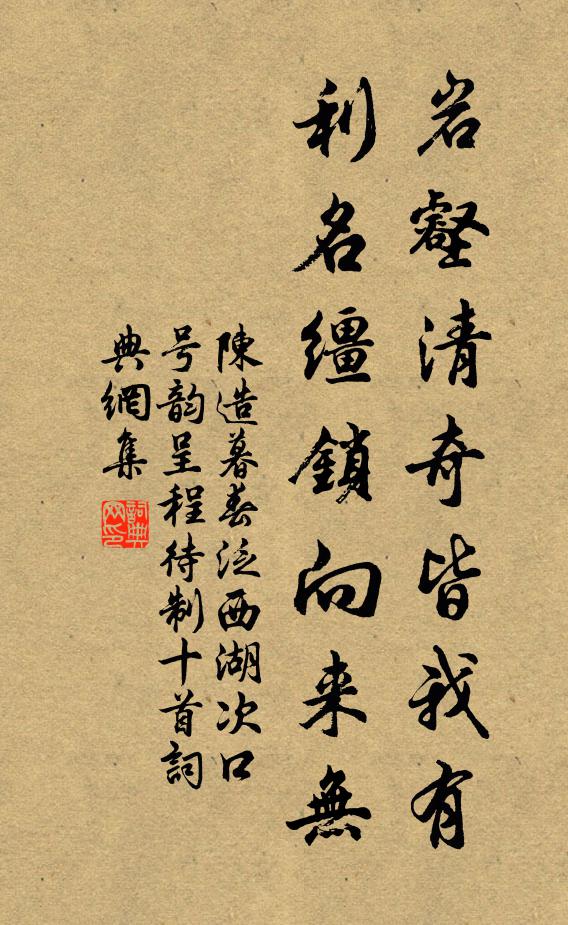 岩壑清奇皆我有
利名缰鎖向来無
陳造暮春泛西湖次口
号韵呈程待制十首詞
典網集
詞典
网印